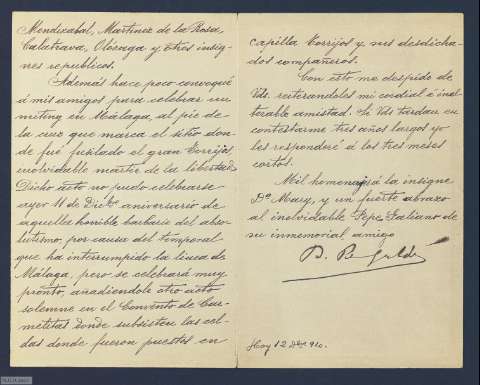 Mendizabal, Martinez de la Rosa,
Calatrava, Olózaga y otros insig-
nes republicos.
Además hace poco convoqué
á mis amigos para celebrar un
miting en Málaga, al pie de
la cruz que marca el sitio don-
de fué fusilado el gran Torrijos,
inolvidable martir de la libertad.
Dicho acto no pudo celebrarse
ayer 11 de Dicbre aniversario de
aquella horrible barbarie del abso-
lutismo, por causa del temporal
que ha interrumpido la linea de
Málaga, pero se celebrará muy
pronto, añadiendole otro acto
solemne en el Convento de Car-
melitas donde subsisten las cel-
das donde fueron puestos en
capilla Torrijos y sus desdicha-
dos compañeros.
Con esto me despido de
Vds. reiterandoles mi cordial é inal-
terable amistad. Si Vds tardan en
contestarme tres años largos yo
les responderé á los tres meses
cortos.
Mil homenajes á la insigne
Da Mary, y un fuerte abrazo
al inolvidable Pepe Galiano de
su inmemorial amigo
B. Pe Galdós
Hoy 12 Dbre 910.